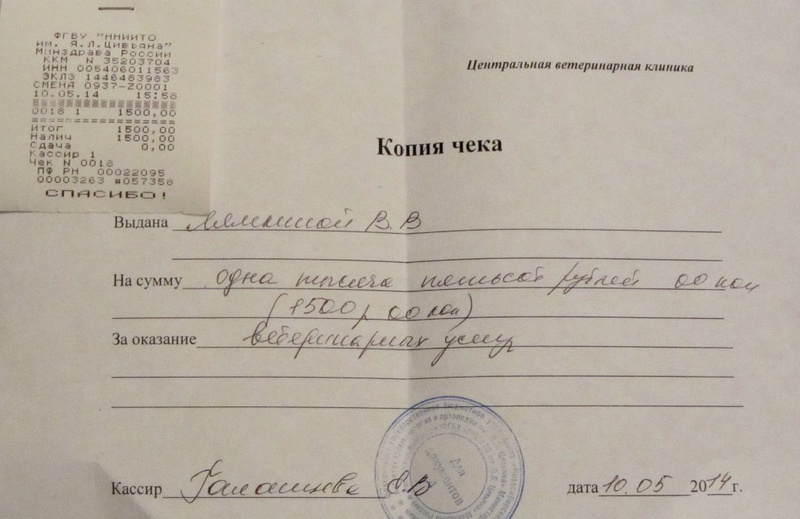 ФГБУ "ННИИТО
им. Я.Л.Цивьяна"
Минздрава России
ККМ N 35203704
ИНН 005406011563
ЭКЛЗ 1446483983
СМЕНА 0937-Z0001
10.05.14 15:56
0018 1 1500,00
Итог 1500,00
Налич 1500,00
Сдача 0,00
Кассир 1
Чек N 0018
ПФ РН 00022095
00003263 #057358
СПАСИБО!
Центральная ветеринарная клиника
Копия чека
Выдана В.В
На сумму одна тысяча пятьсот рублей 00 коп
(1500 р 00 коп)
За оказание ветеринарных услуг
Для документов
Кассир дата 10.05 2014 г.